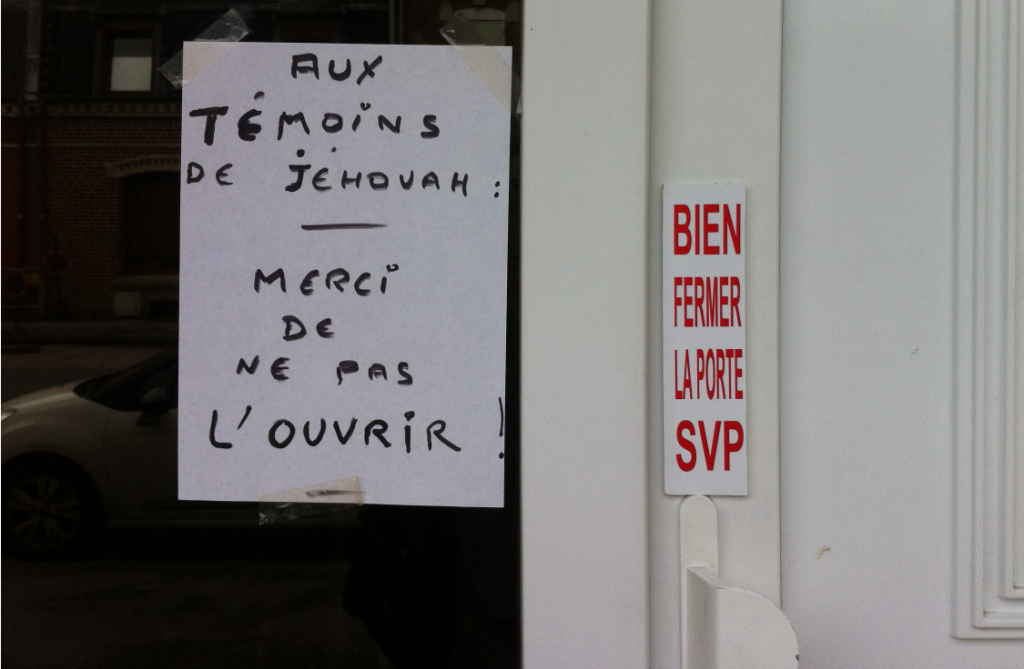 AUX
TÉMOINS
DE JÉHOVAH :
MERCI
DE
NE PAS
L'OUVRIR !
BIEN
FERMER
LA PORTE
SVP